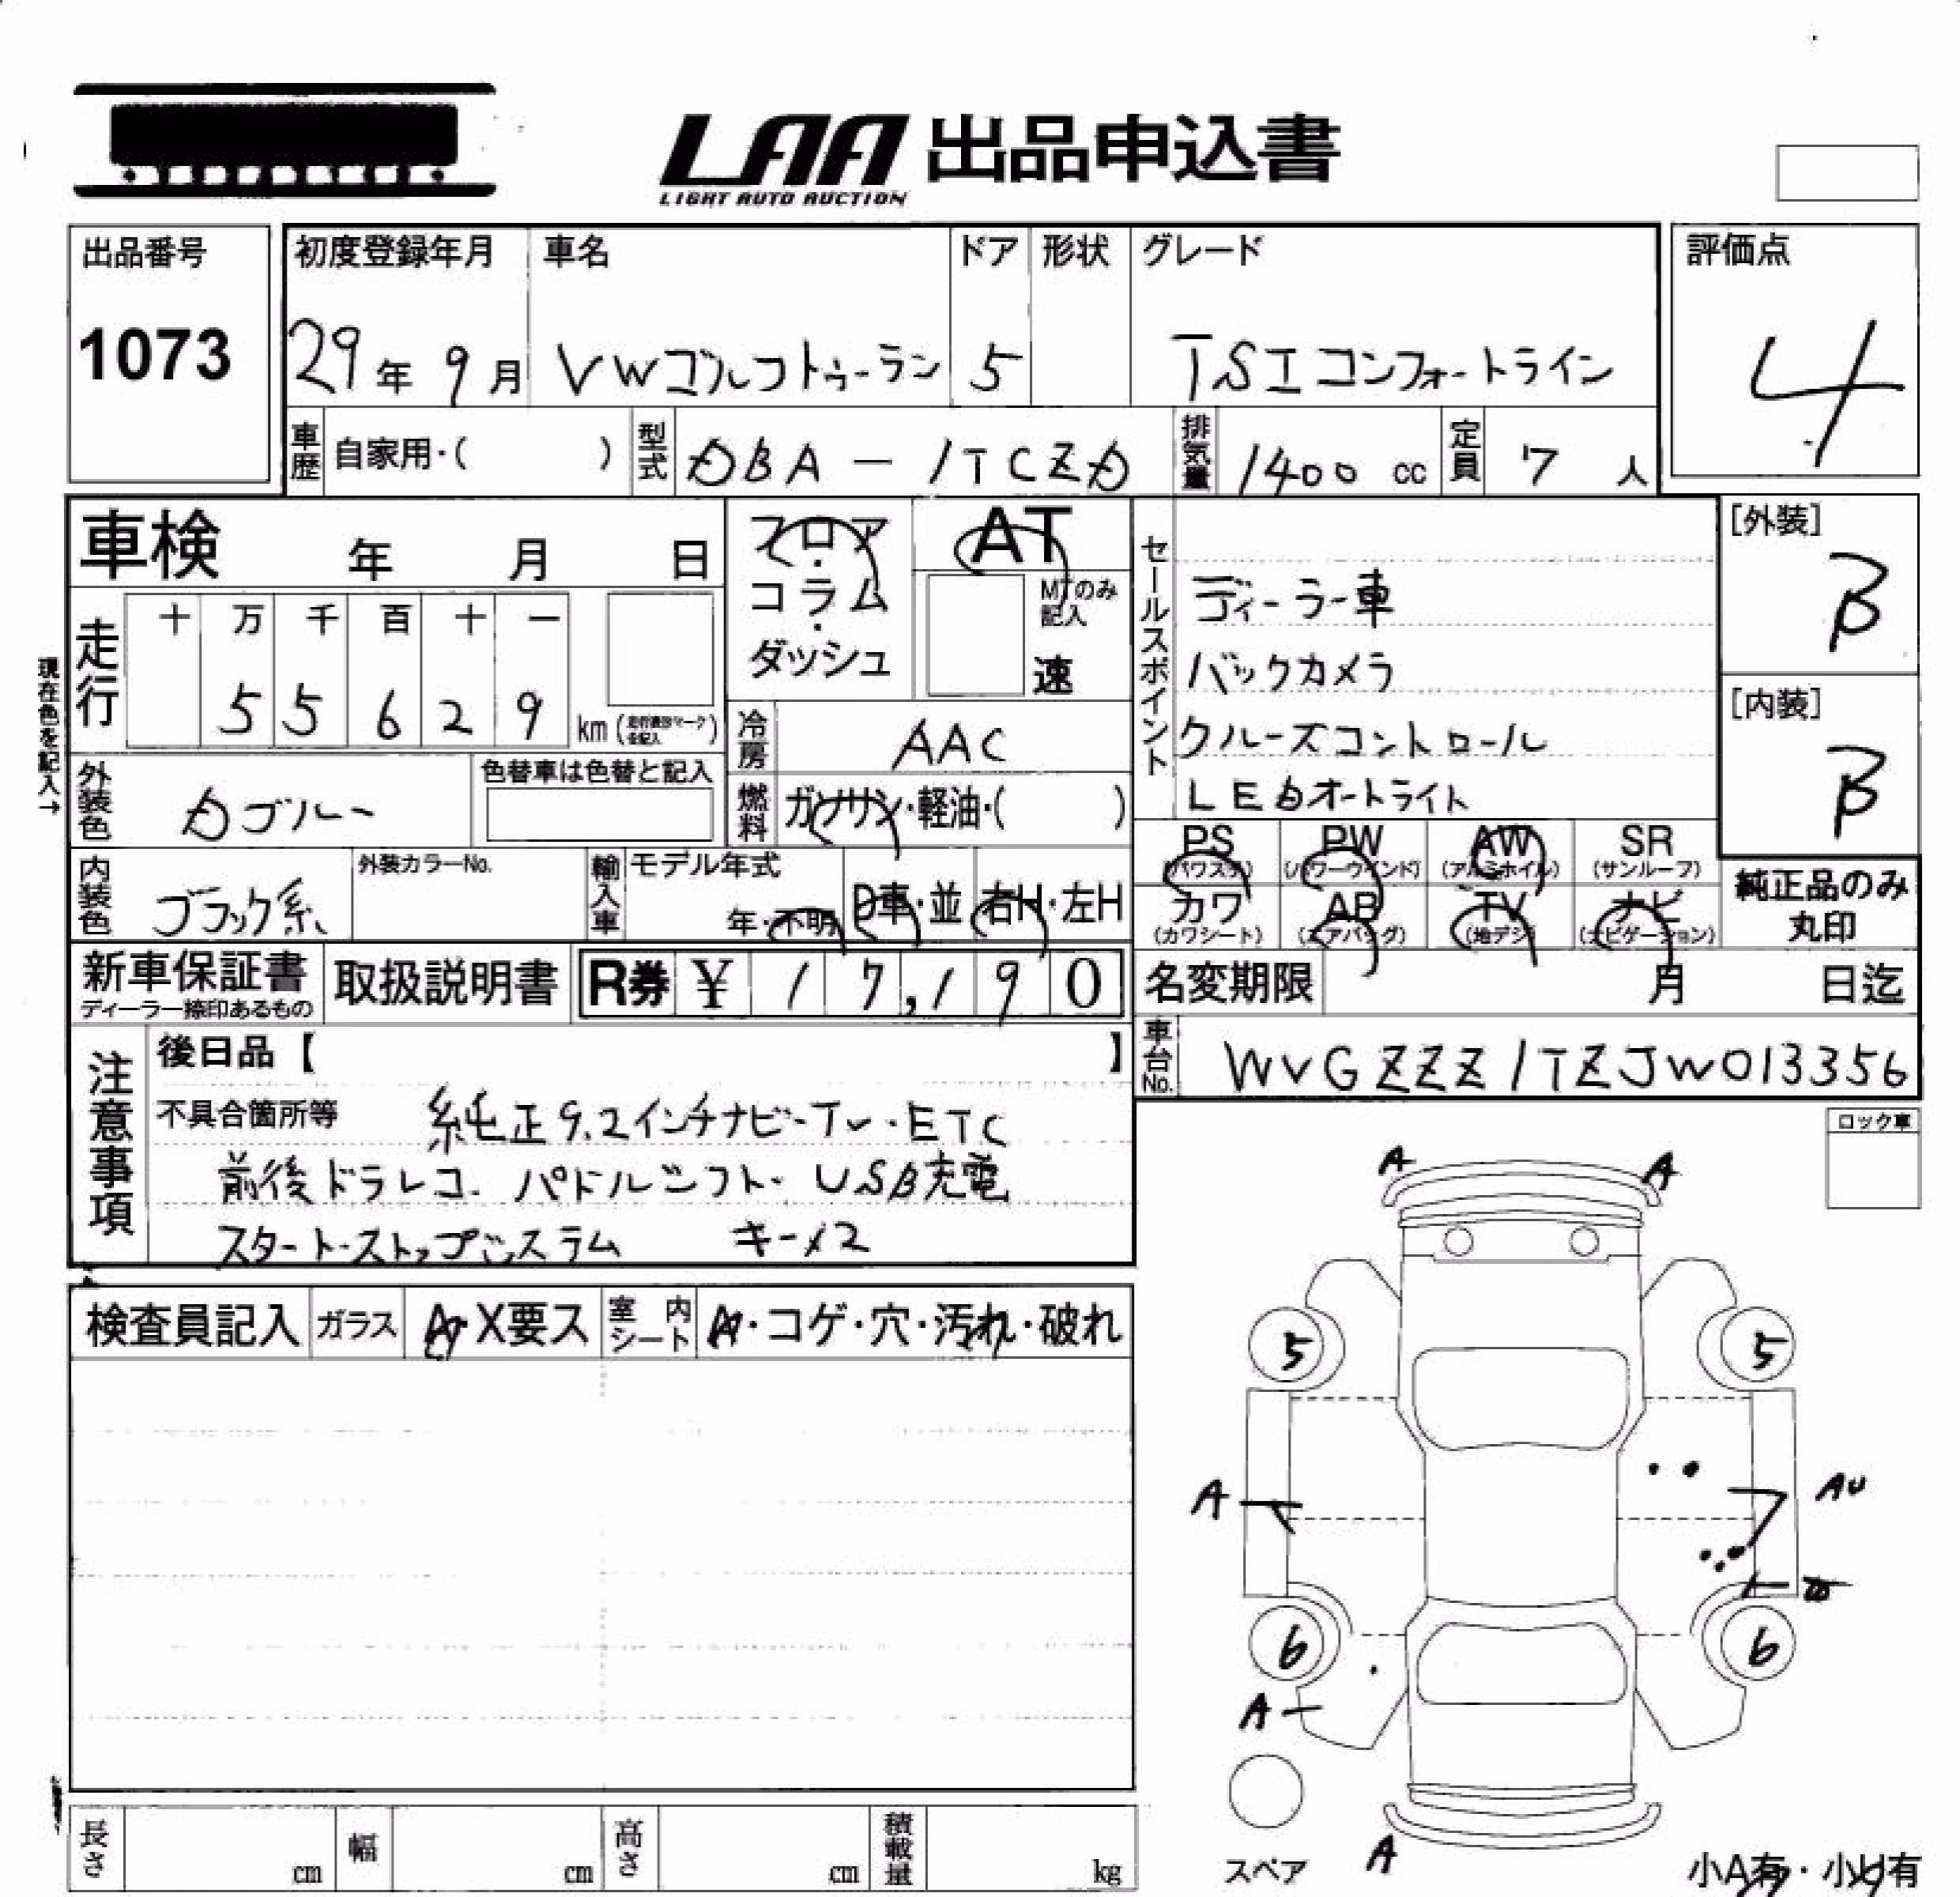 LAA 出品申込書
LIGHT AUTO AUCTION
出品番号
1073
初度登録年月
29年 9月
車名
VWゴルフトゥーラン
ドア
5
形状
グレード
TSIコンフォートライン
評価点
4
車歴 自家用・( )
型式 DBA-1TCZD
排気量 1400 cc
定員 7 人
車検 年 月 日
フロア・コラム・ダッシュ
AT
MTのみ記入
速
セールスポイント
ディーラー車
バックカメラ
クルーズコントロール
LEDオートライト
[外装]
B
[内装]
B
現在色を記入→
走行
十 万 千 百 十 一
5 5 6 2 9
km
冷房 AAC
外装色 Dブルー
色替車は色替と記入
燃料 ガソリン・軽油・( )
PS (パワステ) PW (パワーウインド) AW (アルミホイル) SR (サンルーフ)
カワ (カワシート) AB (エアバッグ) TV (地デジ) ナビ (ナビゲーション)
純正品のみ丸印
内装色 ブラック系
外装カラーNo.
輸入車 モデル年式 年・不明 D車・並 右H・左H
新車保証書
ディーラー捺印あるもの
取扱説明書
R券 ¥ 17,190
名変期限 月 日迄
車台No. WVGZZZ1TZJW013356
注意事項
後日品【 】
不具合箇所等 純正9.2インチナビ・TV・ETC
前後ドラレコ・パドルシフト・USB充電
スタート・ストップシステム キー×2
ロック車
検査員記入 ガラス A・X要ス 室内シート A・コゲ・穴・汚れ・破れ
A A
5 5
A AU
6 6
A
スペア
A
小A有・小U有
長さ cm 幅 cm 高さ cm 積載量 kg